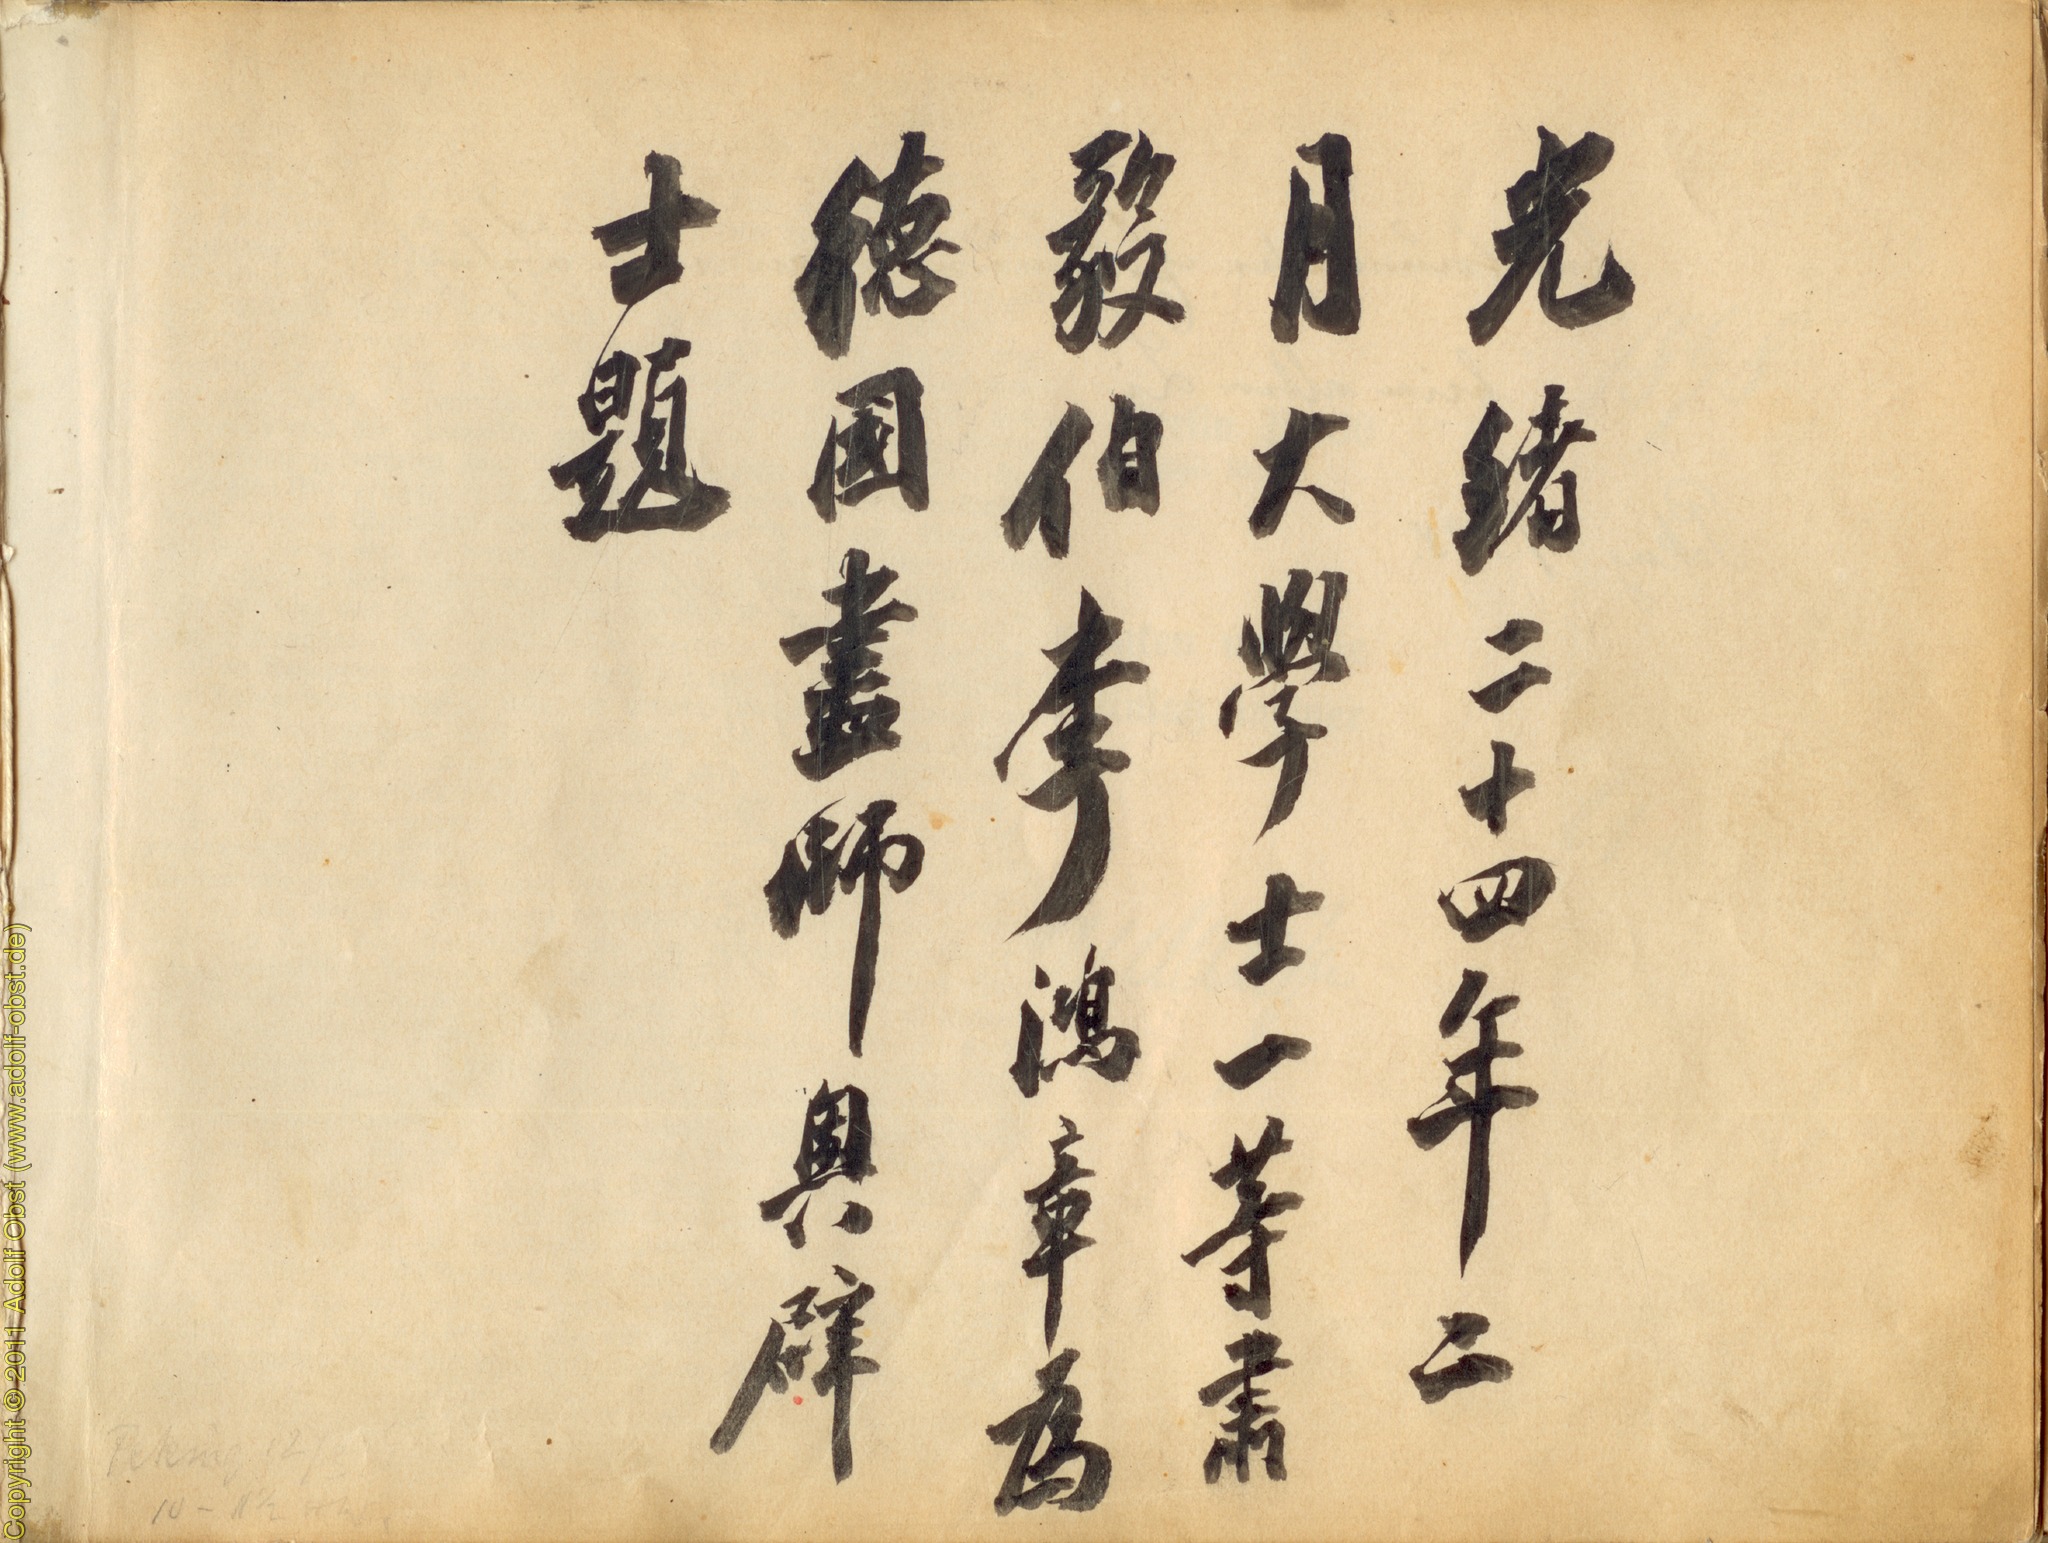 光緒二十四年二
月大學士一等肅
毅伯李鴻章為
德國畫師奧辟
士題
Copyright © 2011 Adolf Obst (www.adolf-obst.de)
Peking